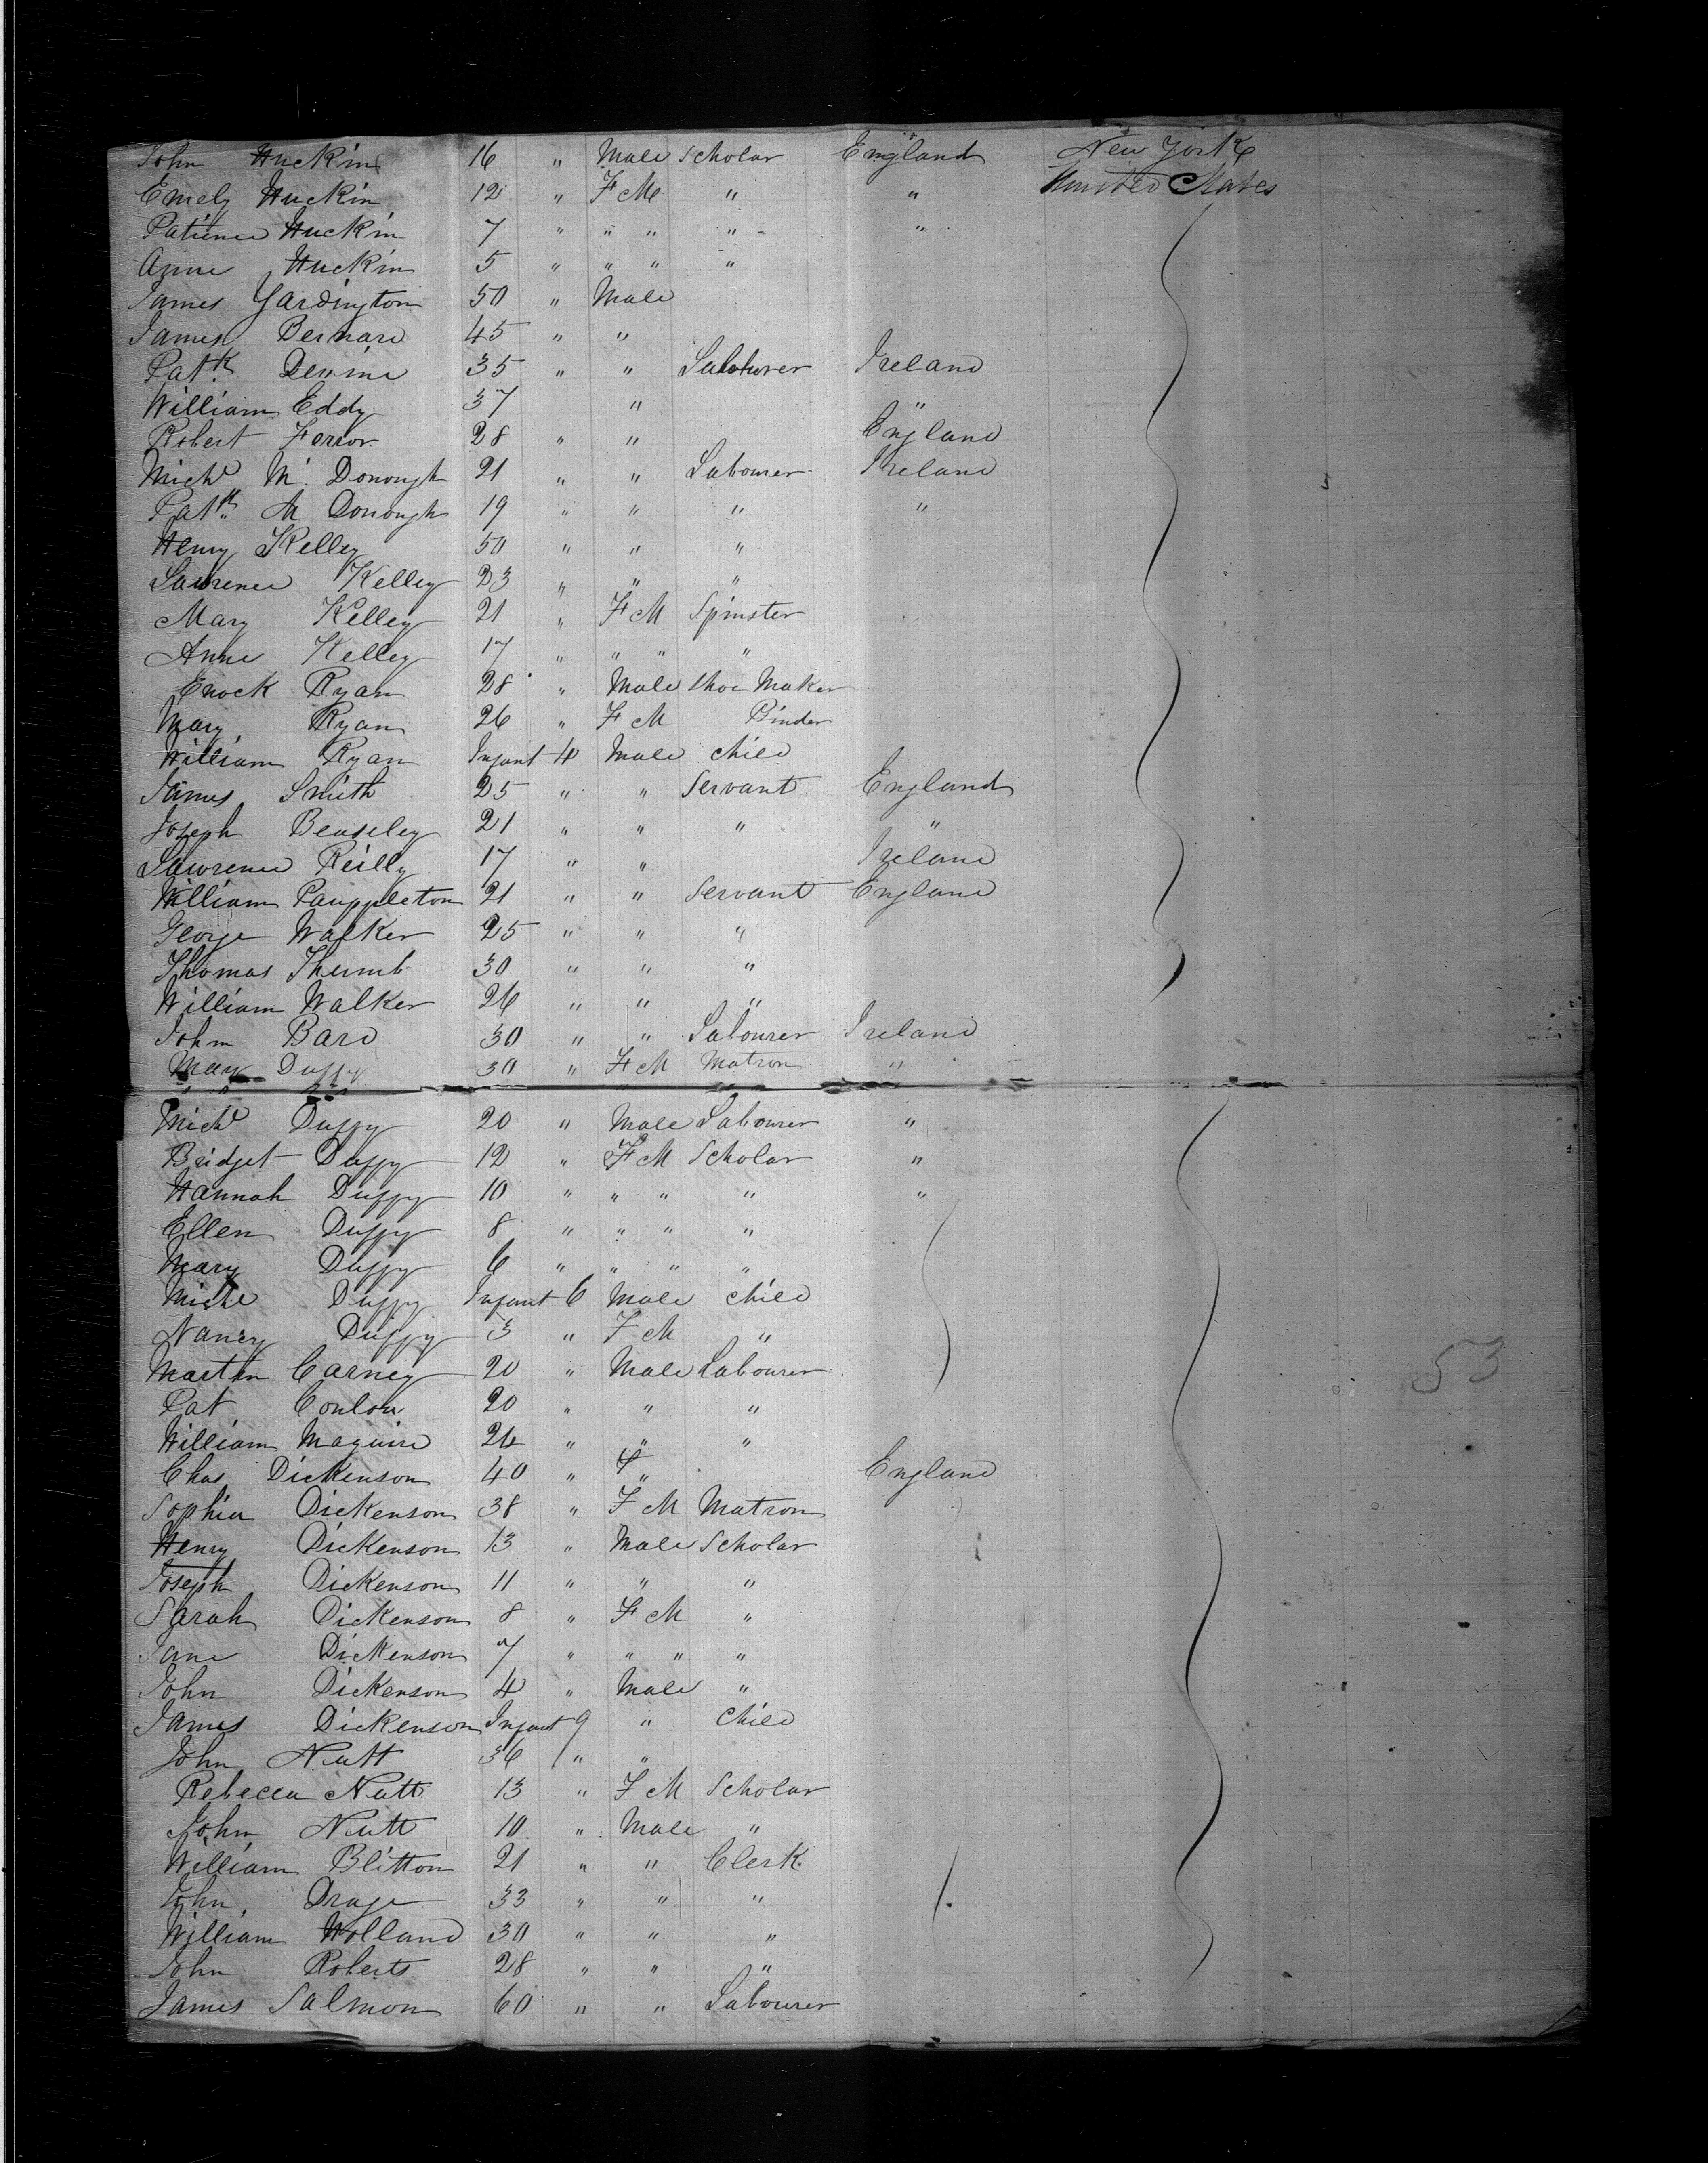 John Huckin 16 " Male Scholar England New York
Emely Huckin 12 " F M " " United States
Patience Huckin 7 " " " " "
Anne Huckin 5 " " " "
James Yardington 50 " Male
James Bernard 45 " "
Patk Devine 35 " " Labourer Ireland
William Eddy 37 " "
Robert Ferror 28 " " England
Michl M. Donough 21 " " Labourer Ireland
Patk M Donough 19 " " " "
Henry Kelley 50 " " "
Lawrence Kelley 23 " " "
Mary Kelley 21 " F M Spinster
Anne Kelley 17 " " " "
Enock Ryan 28 " Male Shoe Maker
Mary Ryan 26 " F M Binder
William Ryan Infant 4 Male Child
James Smith 25 " " Servant England
Joseph Beaseley 21 " " " "
Lawrence Reilly 17 " " Ireland
William Pauppleton 21 " " Servant England
George Walker 25 " " "
Thomas Thumb 30 " " "
William Walker 26 " " "
John Bard 30 " " Labourer Ireland
Mary Duffy 30 " F M Matron "
Michl Duffy 20 " Male Labourer "
Bridget Duffy 12 " F M Scholar "
Hannah Duffy 10 " " " " "
Ellen Duffy 8 " " " "
Mary Duffy 6 " " " "
Michl Duffy Infant 6 Male Child
Nancy Duffy 3 " F M "
Martin Carney 20 " Male Labourer
Pat Conlon 20 " " "
William Maguire 24 " " "
Chas Dickenson 40 " " England
Sophia Dickenson 38 " F M Matron
Henry Dickenson 13 " Male Scholar
Joseph Dickenson 11 " " "
Sarah Dickenson 8 " F M "
Jane Dickenson 7 " " " "
John Dickenson 4 " Male "
James Dickenson Infant 9 " Child
John Nutt 36 " "
Rebecca Nutt 13 " F M Scholar
John Nutt 10 " Male "
William Blitton 21 " " Clerk
John Drage 33 " " "
William Holland 30 " " "
John Roberts 28 " " "
James Salmon 60 " " Labourer
53